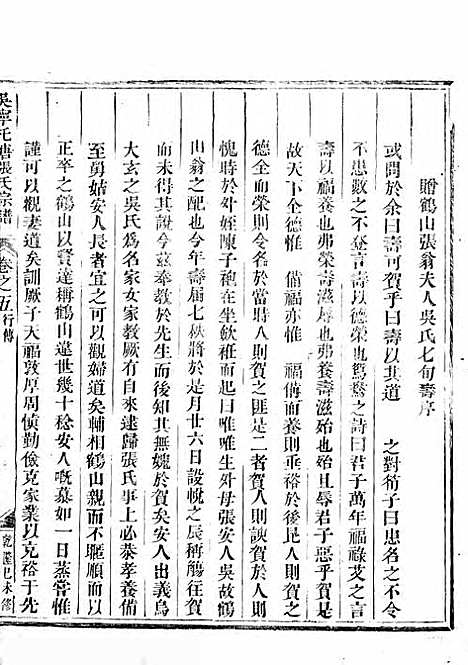 贈鶴山張翁夫人吳氏七旬壽序
或問於余曰壽可賀乎曰壽以其道 之對荀子曰患名之不令
不患數之不 言以德榮也鴛鴦之詩曰君子萬年福祿艾之言
壽以福養也弗榮壽滋殆也弗養壽滋 也且辱君子惡乎賀
故天下全德惟 備福亦惟 備而養則垂裕於後昆人曰
德全而榮則令 於當時人則賀之匪是二者賀人人於人則
愧時於外姪陳子 在坐歛衽而起曰唯唯生外母張安人吳故鶴
山翁之配也今年壽屆七秩將於是月廿六日設帨之辰稱觴往賀
而未得其說今茲奉教於先生而後知其無媿於賀矣安人出義烏
大玄之吳氏爲名家女家教厥有自來逮歸張氏事上必恭孝養備
至舅姑安人長者宜之可以觀婦道矣輔相鶴山親而不 順而以
正卒之鶴山以賢達稱鶴山違世幾十稔安人 慕如一日蒸嘗惟
謹可以觀妻道矣訓厥子天福敦厚周愼勤儉克家業以克裕于先
吳寧托塘張氏宗譜 卷之五 行傳 己未修